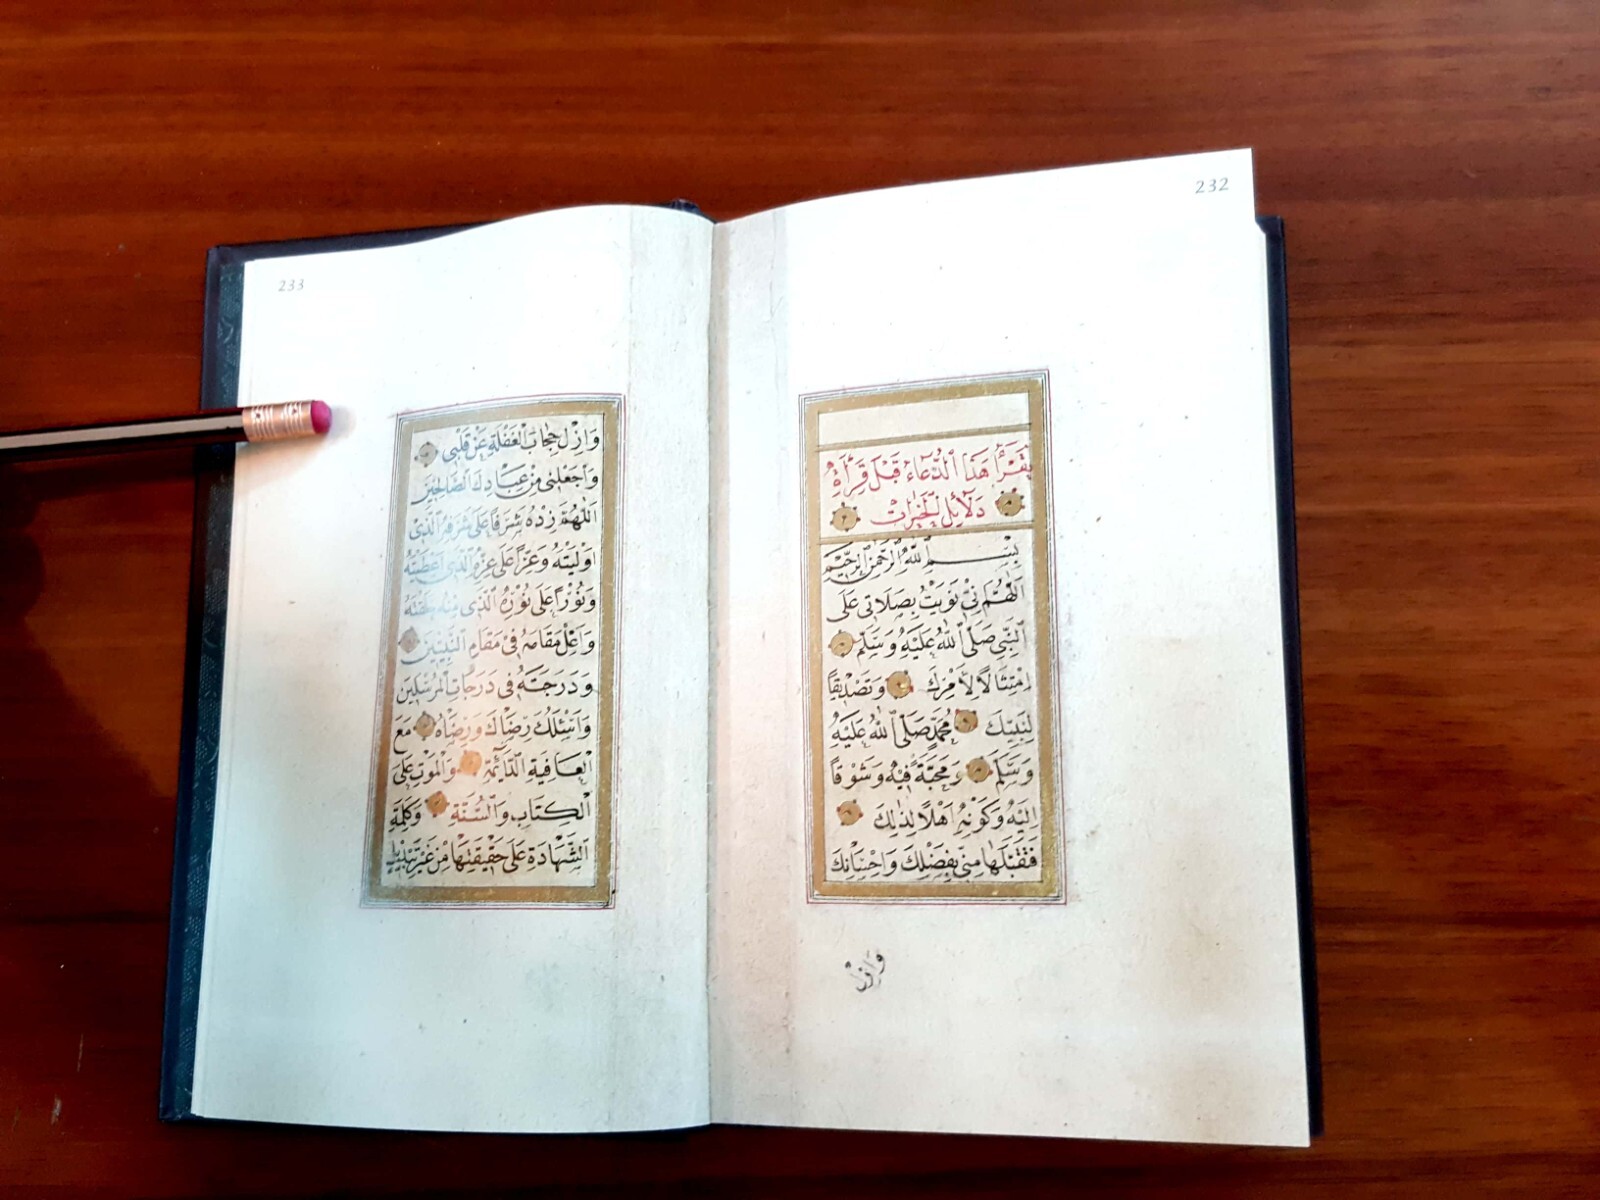 232
يُقْرَأُ هَذَا الدُّعَاءُ قَبْلَ قِرَاءَةِ
دَلَائِلِ الْخَيْرَاتْ
بِسْمِ اللّٰهِ الرَّحْمٰنِ الرَّحِيْمِ
اَللّٰهُمَّ اِنِّى نَوَيْتُ بِصَلَاتِى عَلَى
النَّبِىِّ صَلَّى اللّٰهُ عَلَيْهِ وَسَلَّمَ
اِمْتِثَالًا لِاَمْرِكَ وَتَصْدِيْقًا
لِنَبِيِّكَ مُحَمَّدٍ صَلَّى اللّٰهُ عَلَيْهِ
وَسَلَّمَ وَمَحَبَّةً فِيْهِ وَشَوْقًا
اِلَيْهِ وَكَوْنِهِ اَهْلًا لِذٰلِكَ
فَتَقَبَّلْهَا مِنِّى بِفَضْلِكَ وَاِحْسَانِكَ
وَاَزِلْ
233
وَاَزِلْ حِجَابَ الْغَفْلَةِ عَنْ قَلْبِى
وَاجْعَلْنِى مِنْ عِبَادِكَ الصَّالِحِيْنَ
اَللّٰهُمَّ زِدْهُ شَرَفًا عَلَى شَرَفِهِ الَّذِى
اَوْلَيْتَهُ وَعِزًّا عَلَى عِزِّهِ الَّذِى اَعْطَيْتَهُ
وَنُوْرًا عَلَى نُوْرِهِ الَّذِى مِنْهُ خَلَقْتَهُ
وَاَعْلِ مَقَامَهُ فِى مَقَامِ النَّبِيِّيْنَ
وَدَرَجَتَهُ فِى دَرَجَاتِ الْمُرْسَلِيْنَ
وَاَسْئَلُكَ رِضَاكَ وَرِضَاهُ مَعَ
الْعَافِيَةِ الدَّائِمَةِ وَالْمَوْتِ عَلَى
الْكِتَابِ وَالسُّنَّةِ وَكَلِمَةِ
الشَّهَادَةِ عَلَى حَقِيْقَتِهَا مِنْ غَيْرِ تَبْدِيْلٍ